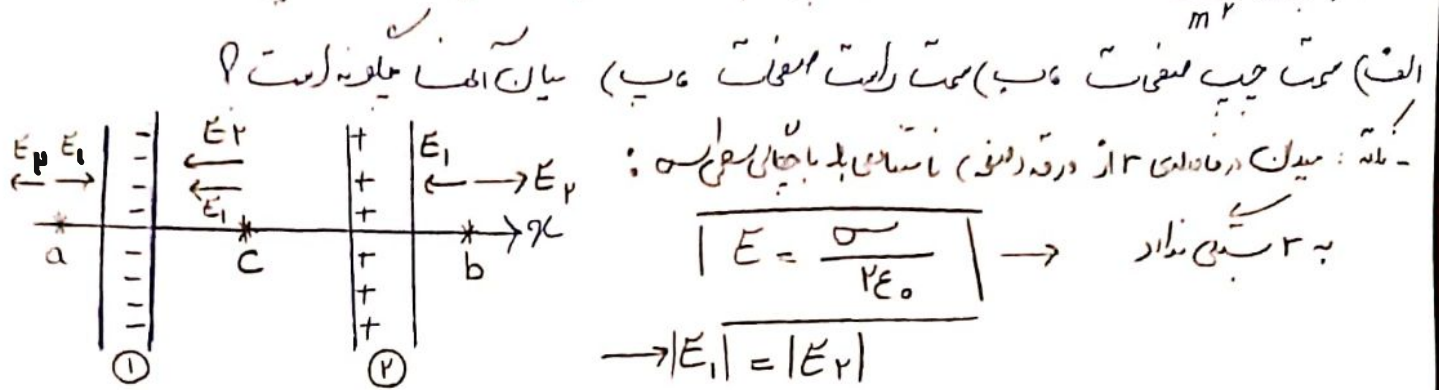 m²
الف) سمت چپ صفحات ،ب) سمت راست صفحات ،پ) میان آنها چگونه است ؟
- نکته : میدان در فاصله‌ی r از ورقه (صفحه) نامتناهی با چگالی سطحی σ :
E = σ / ۲ε₀ → به r بستگی ندارد
→ |E₁| = |E₂|
E₂ E₁
E₂
E₁
E₁ E₂
- - - - - -
+ + + + + +
a c b x
① ②